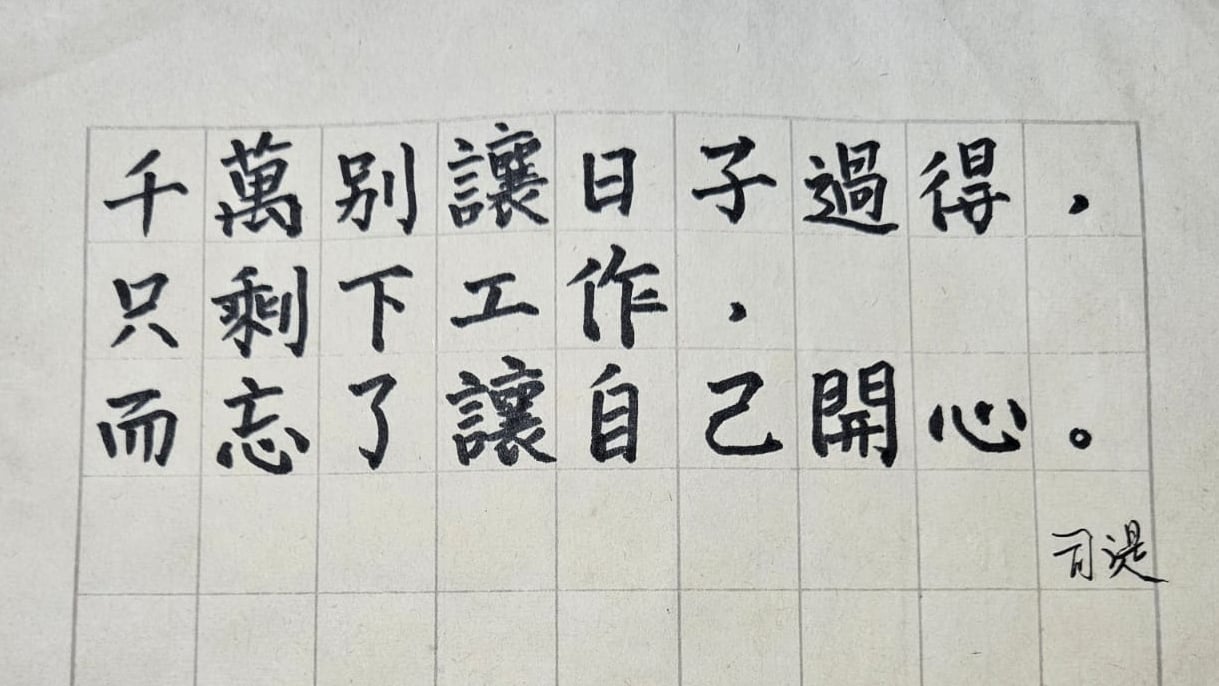 千萬別讓日子過得，
只剩下工作，
而忘了讓自己開心。
司湜